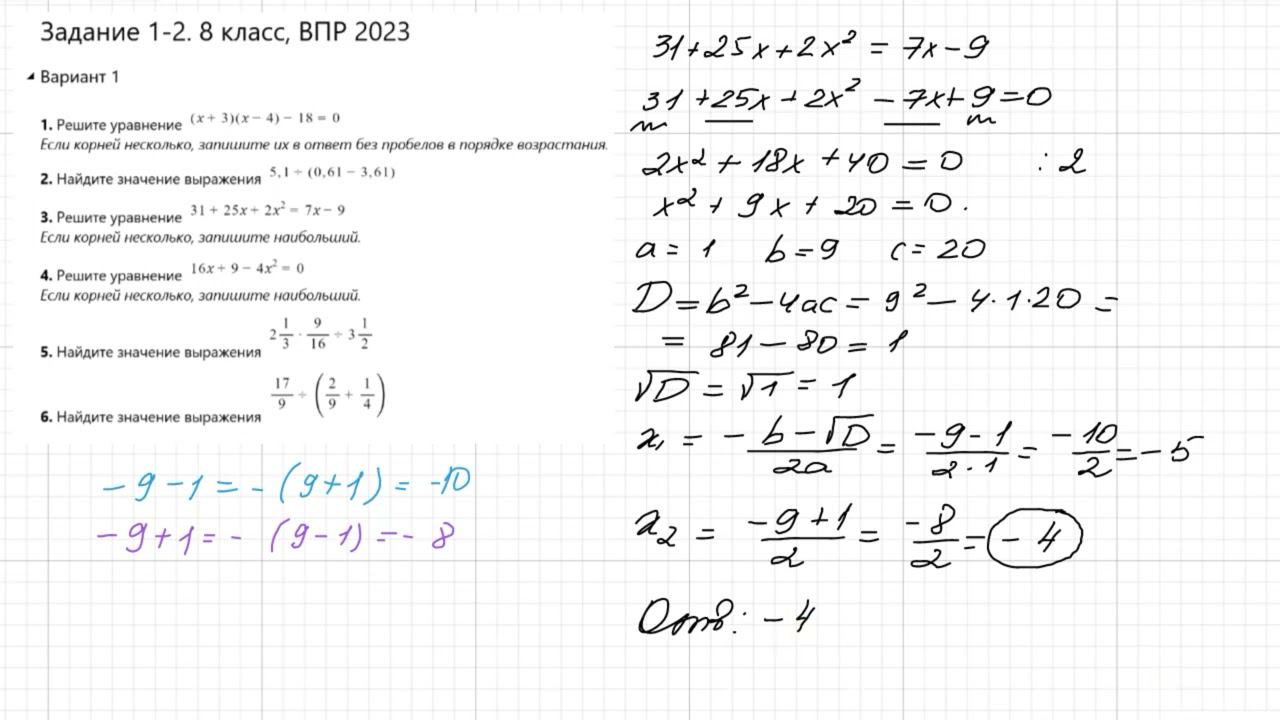 Задание 1-2. 8 класс, ВПР 2023
Вариант 1
1. Решите уравнение (x + 3)(x − 4) − 18 = 0
Если корней несколько, запишите их в ответ без пробелов в порядке возрастания.
2. Найдите значение выражения 5,1 ÷ (0,61 − 3,61)
3. Решите уравнение 31 + 25x + 2x² = 7x − 9
Если корней несколько, запишите наибольший.
4. Решите уравнение 16x + 9 − 4x² = 0
Если корней несколько, запишите наибольший.
5. Найдите значение выражения 2 1/3 · 9/16 ÷ 3 1/2
6. Найдите значение выражения 17/9 ÷ (2/9 + 1/4)
−9−1 = −(9+1) = −10
−9+1 = −(9−1) = −8
31+25x+2x² = 7x−9
31+25x+2x²−7x+9=0
2x²+18x+40=0 :2
x²+9x+20=0.
a=1 b=9 c=20
D=b²−4ac=9²−4·1·20=
=81−80=1
√D=√1=1
x₁=−b−√D/2a=−9−1/2·1=−10/2=−5
x₂=−9+1/2=−8/2=−4
Отв: −4